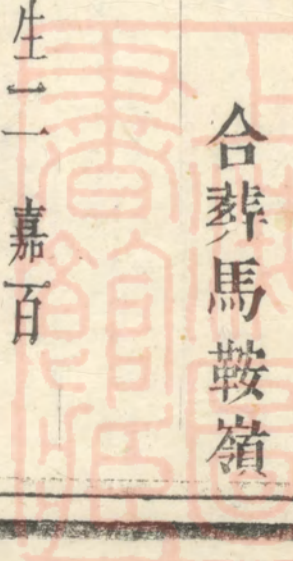 合葬馬鞍嶺
生二 嘉百